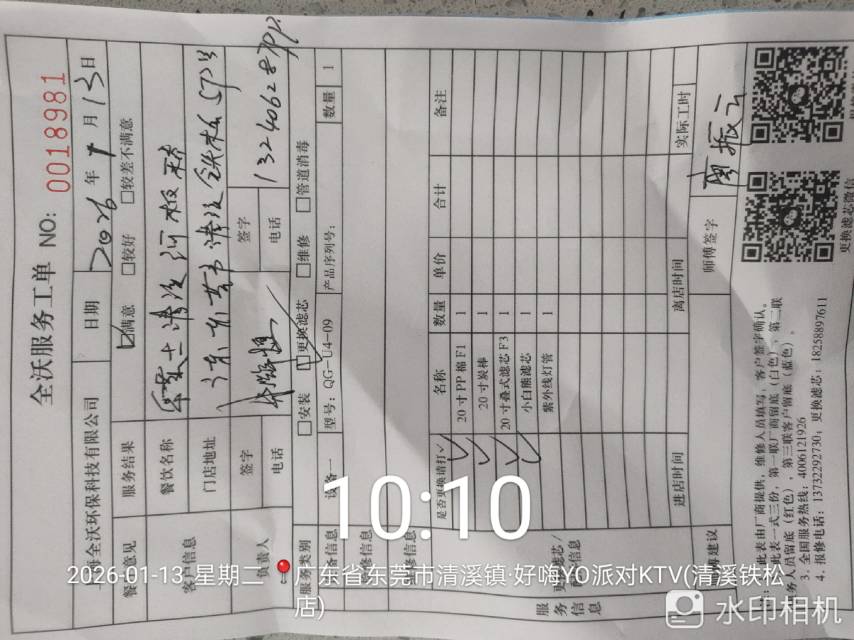 全沃服务工单 NO: 0018981
上海全沃环保科技有限公司 日期 2026年1月13日
餐饮意见 服务结果 ☑满意 □较好 □较差不满意
客户信息 餐饮名称
门店地址 573号
负责人 签字 签字
电话 电话
服务类别 □安装 ☑更换滤芯 □维修 □管道消毒
设备信息 设备一 型号: QG-U4-09 产品序列号: 数量 1
维修信息
维修信息
更换滤芯/ 是否更换请打✓ 名称 数量 单价 合计 备注
✓ 20寸PP棉F1 1
✓ 20寸炭棒 1
✓ 20寸叠式滤芯F3 1
✓ 小白熊滤芯 1
紫外线灯管 1
服务信息 进店时间 离店时间 实际工时
建议 师傅签字
注: 1.此表由厂商提供,维修人员填写,客户签字确认。
此表一式三份,第一联厂商留底(白色)、第二联
服务人员留底(红色)、第三联客户留底(蓝色)。
3.全国服务热线: 4006121926
4.报修电话: 13732292730; 更换滤芯: 18258897611
更换滤芯微信
10:10
2026-01-13 星期二
广东省东莞市清溪镇·好嗨YO派对KTV(清溪铁松店)
水印相机